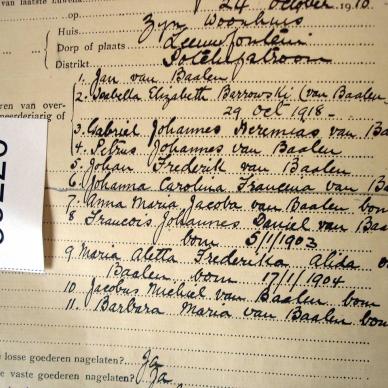 van laatste Luwelij
24 October 1918
op
Huis Zyn Woonhuis
Dorp of plaats Leeuwfontein
Distrikt Potchefstroom
1. Jan van Baalen
ren van over- 2. Isabella Elizabeth Barrowski (van Baalen
meerderjarig of 29 Oct 1918 -
3. Gabriel Johannes Jeremias van Ba
4. Petrus Johannes van Baalen
5. Johan Frederik van Baalen
6. Johanna Carolina Francina van B
7. Anna Maria Jacoba van Baalen born
8 Francois Johannes Daniel van Baa
born 5/1/1903
9. Maria Aletta Frederika Alida
Baalen born 17/1/1904
10. Jacobus Michiel van Baalen born
11. Barbara Maria van Baalen born
e losse goederen nagelaten?.. Ja
e vaste goederen nagelaten?.. Ja